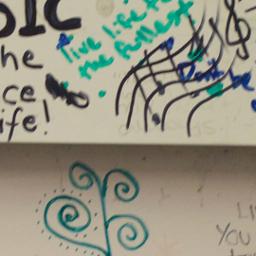 SIC
he
ce
ife!
live life to
the fullest
Don't be
LI
YOU